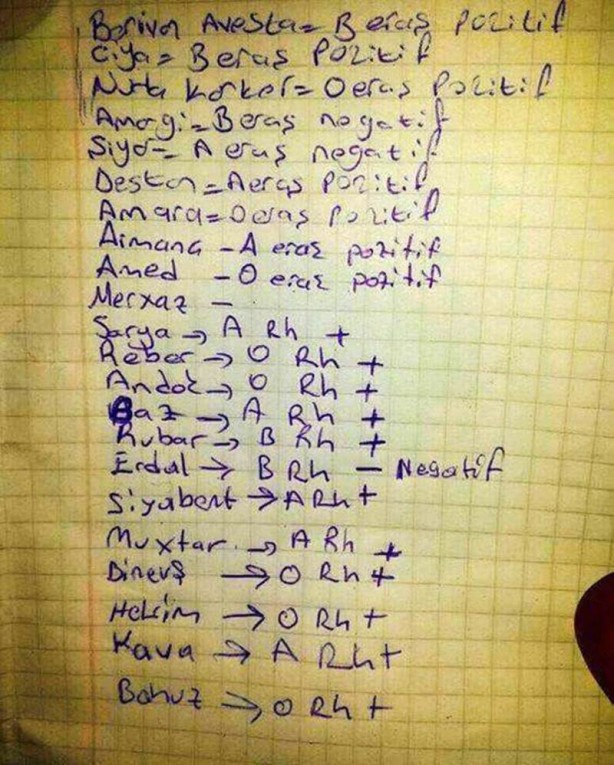 Berivan Avesta= B eraş pozitif
Ciya= B eraş pozitif
Nuda Korker= O eraş pozitif
Amargi= B eraş negatif
Siyar= A eraş negatif
Destan= A eraş pozitif
Amara= O eraş pozitif
Aimana - A eraş pozitif
Amed - O eraş pozitif
Merxaz -
Sarya → A Rh +
Reber → O Rh +
Andok → O Rh +
Baz → A Rh +
Rubar → B Rh +
Erdal → B Rh - Negatif
Siyabent → A Rh +
Muxtar. → A Rh +
Dinerş → O Rh +
Hekim → O Rh +
Kava → A Rh +
Bahuz → O Rh +